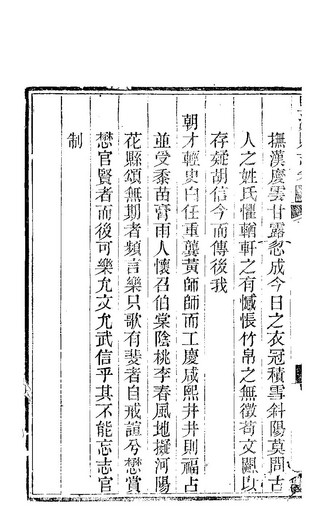 撫漢慶雲甘露忽成今日之衣冠積雪斜陽莫問古
人之姓氏懼輶軒之有憾悵竹帛之無徵苟文獻以
存疑胡信今而傳後我
朝才輕史白任重龔黃師師而工慶咸熙井井則福占
並受黍苗膏雨人懷召伯棠陰桃李春風地擬河陽
花縣頌無期者頻言樂只歌有斐者自戒諠兮懋賞
懋官賢者而後可樂允文允武信乎其不能忘志官
制